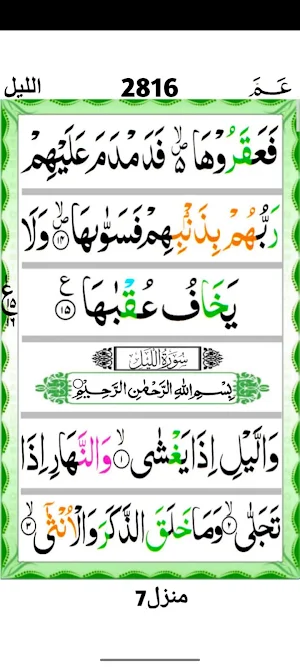 الليل 2816 عَمَّ
فَعَقَرُوْهَا ۙ۵ فَدَمْدَمَ عَلَيْهِمْ
رَبُّهُمْ بِذَنْۢبِهِمْ فَسَوّٰىهَا ۙ۱۴ وَلَا
يَخَافُ عُقْبٰهَا ۱۵ ع
ع ۱۵ ۱۶
سُوْرَةُ اللَّيْلِ
بِسْمِ اللّٰهِ الرَّحْمٰنِ الرَّحِيْمِ
وَالَّيْلِ اِذَا يَغْشٰى ۙ۱ وَالنَّهَارِ اِذَا
تَجَلّٰى ۙ۲ وَمَا خَلَقَ الذَّكَرَ وَالْاُنْثٰٓى ۙ۳
منزل7